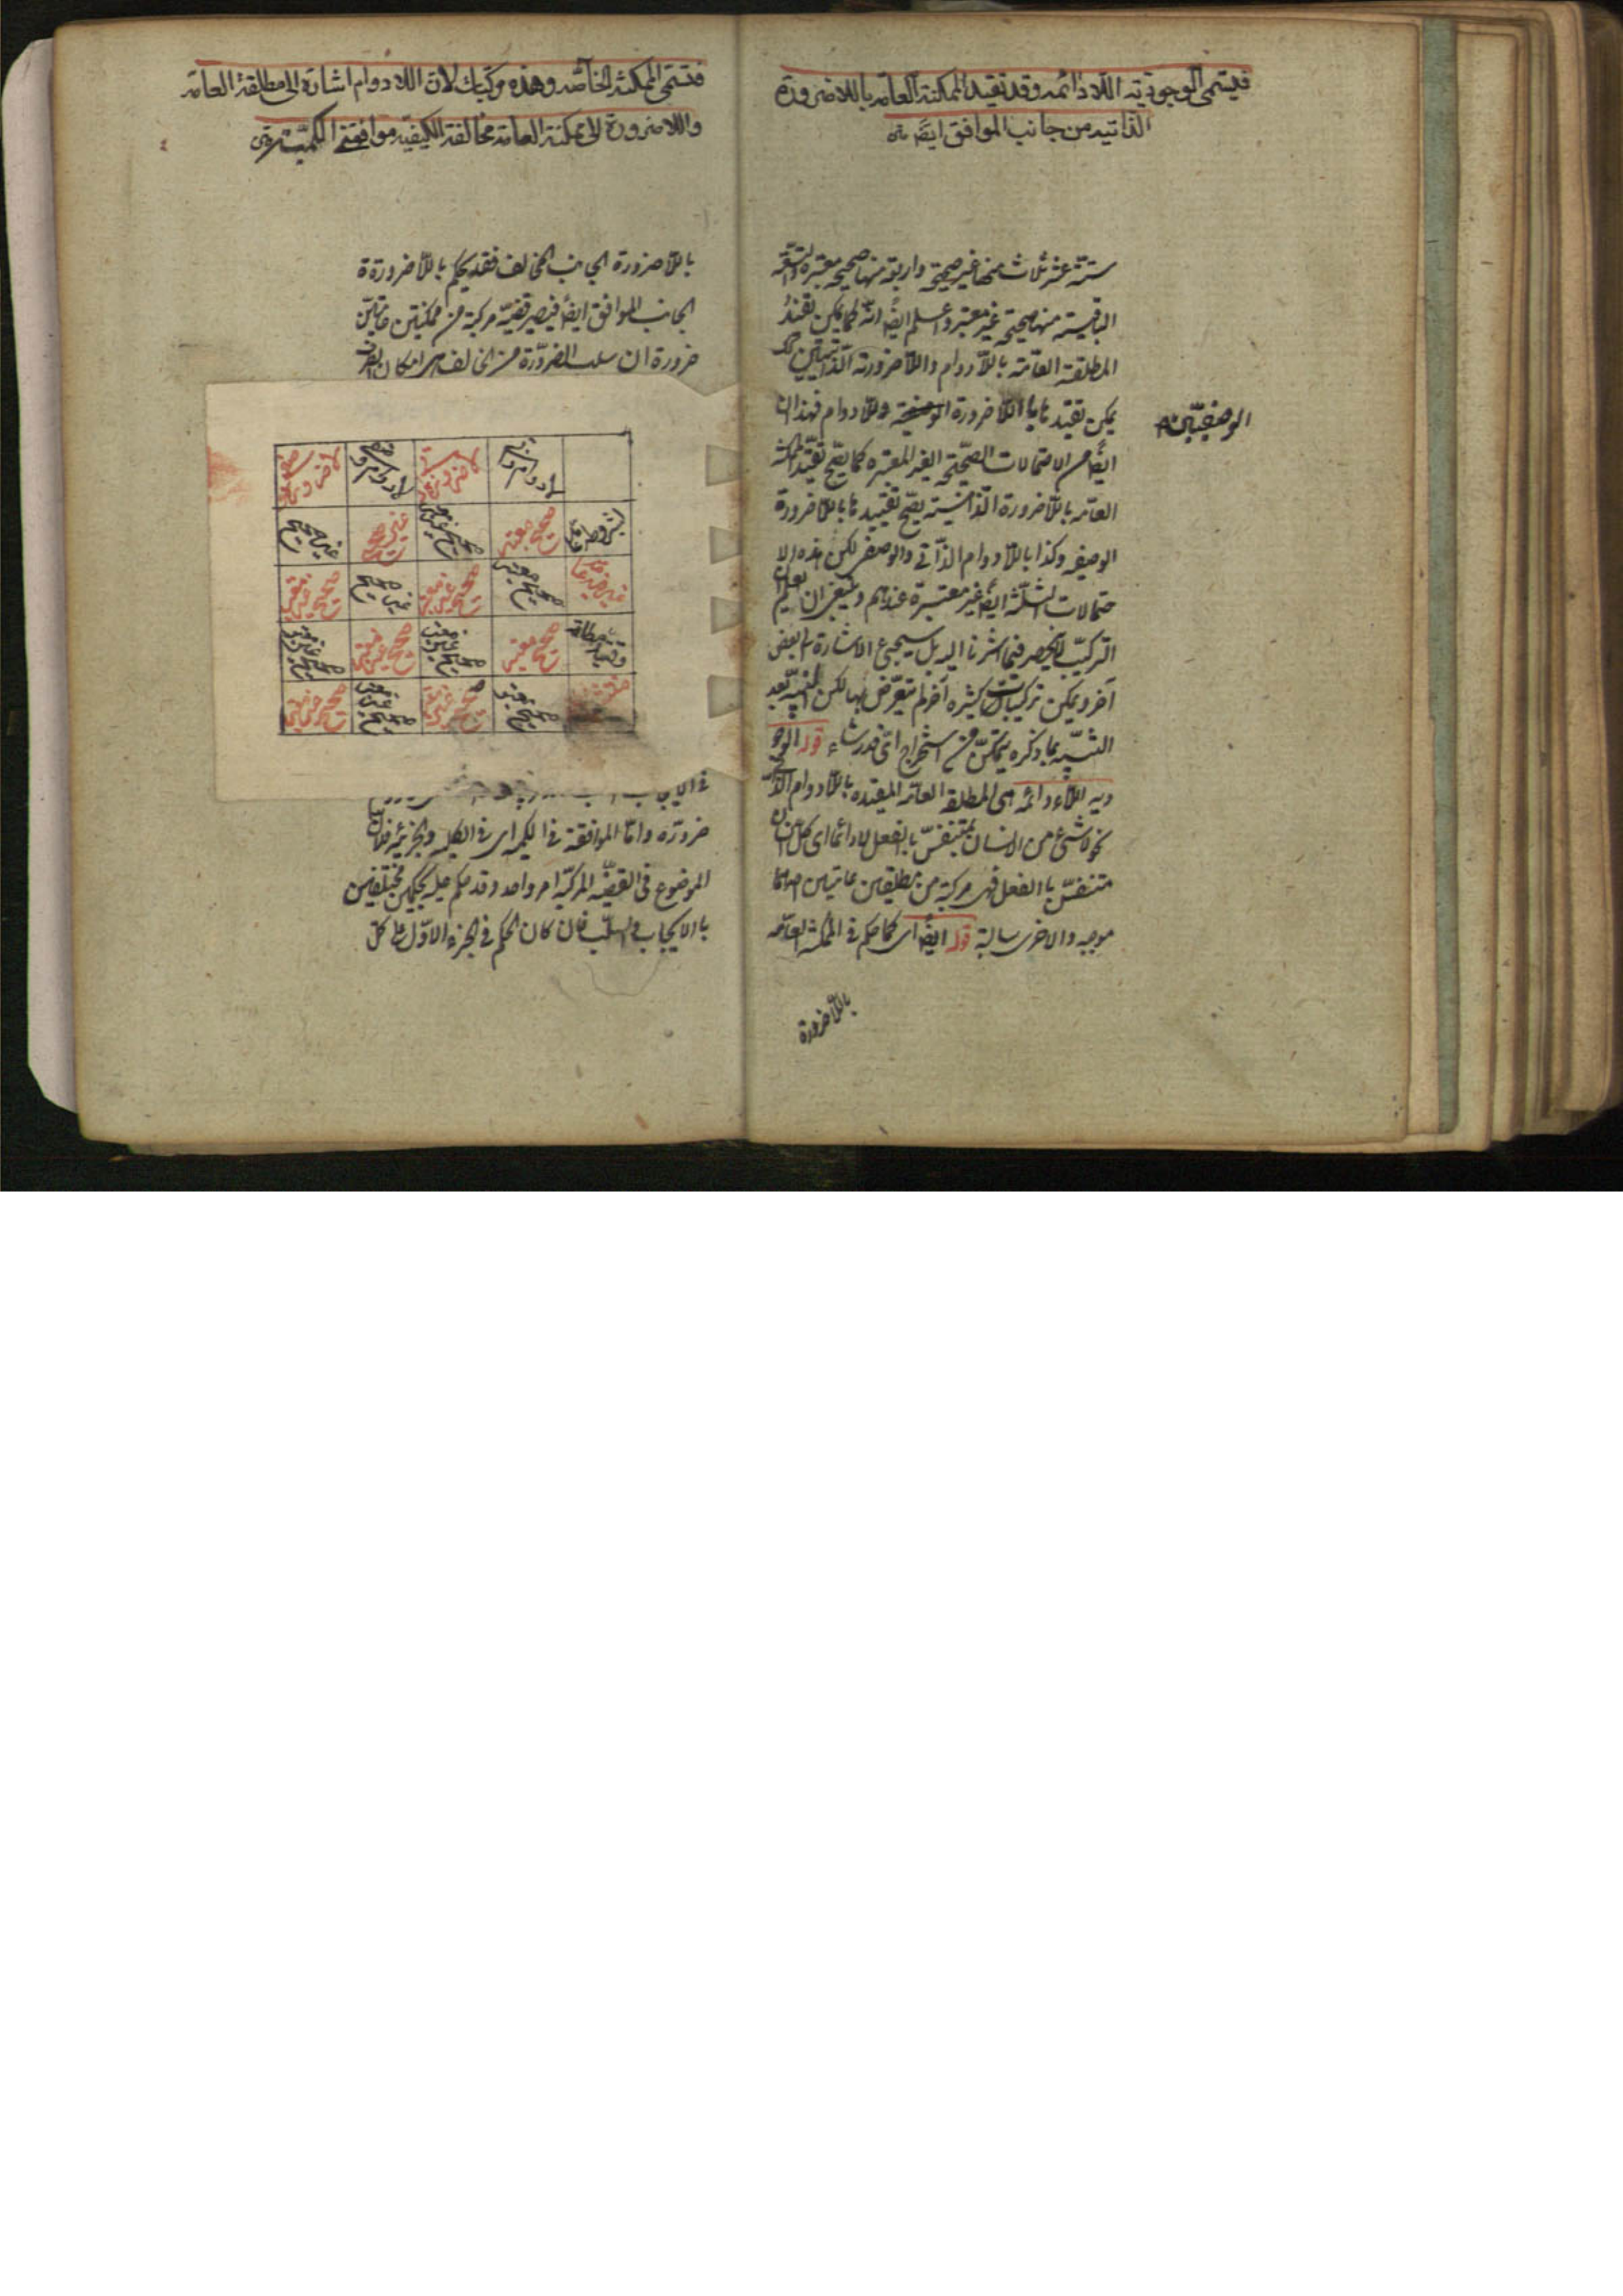 فيسمى الوجودية اللادائمه وقد تقيد الممكنة العامة باللاضرورة
الذاتيه من جانب الموافق ايضا
ستة عشر ثلاث منها غير صحيحة واربعة منها صحيحة معتبرة والتسعة
الباقية منها صحيحة غير معتبره واعلم ايضا انه كما يمكن تقييد
المطلقة العامة باللادوام واللاضرورة الذاتيتين كك
يمكن تقييدها باللاضرورة واللادوام فهذان
الوصفيتين
ايضا من الاحتمالات الصحيحة الغير المعتبره كما يصح تقييد الممكنة
العامه باللاضرورة الذاتية يصح تقييدها باللاضرورة
الوصفيه وكذا باللادوام الذاتي والوصفي لكن هذه الا
حتمالات الثلثة ايضا غير معتبرة عندهم وينبغي ان يعلم ان
التركيب لا ينحصر فيما اشرنا اليه بل سيجيء الاشارة الى بعض
آخر ويمكن تركيبات كثيره آخر لم يتعرض بها لكن المتنبه بعد
التنبيه بما ذكره يتمكن من استخراج اي قدر شاء قوله الوجو
ديه اللادائمه هي المطلقة العامه المقيده باللادوام الذاتي
نحو لا شيء من الانسان بمتنفس بالفعل لا دائما اي كل انسان
متنفس بالفعل فهي مركبة من مطلقتين عامتين احداهما
موجبه والاخرى سالبة قوله ايضا اي كما حكم في الممكنة العامه
باللاضرورة
فتسمى الممكنة الخاصه وهذه مركبات لان اللادوام اشارة الى مطلقة العامة
واللاضرورة الى ممكنة العامة مخالفة الكيفيه موافقتي الكمية
باللاضرورة الجانب المخالف فقد يحكم باللاضرورة
الجانب الموافق ايضا فيصير قضية مركبة من ممكنتين عامتين
ضرورة ان سلب الضرورة من المخالف هو امكان الطرف
لا دوام ذاتي
مشروطه عامه صحيح معتبر صحيح غير معتبر غير صحيح غير صحيح
عرفيه عامه صحيح معتبر صحيح غير معتبر غير صحيح صحيح غير معتبر
وقتيه مطلقة صحيح معتبر صحيح غير معتبر صحيح غير معتبر صحيح غير معتبر
صحيح معتبر صحيح غير معتبر صحيح غير معتبر صحيح غير معتبر
ضرورة واما الموافقة في الكمية اي في الكليه والجزئيه فلان
الموضوع في القضيه المركبه امر واحد وقد حكم عليه بحكمين مختلفين
بالايجاب والسلب فان كان الحكم في الجزء الاول على كل